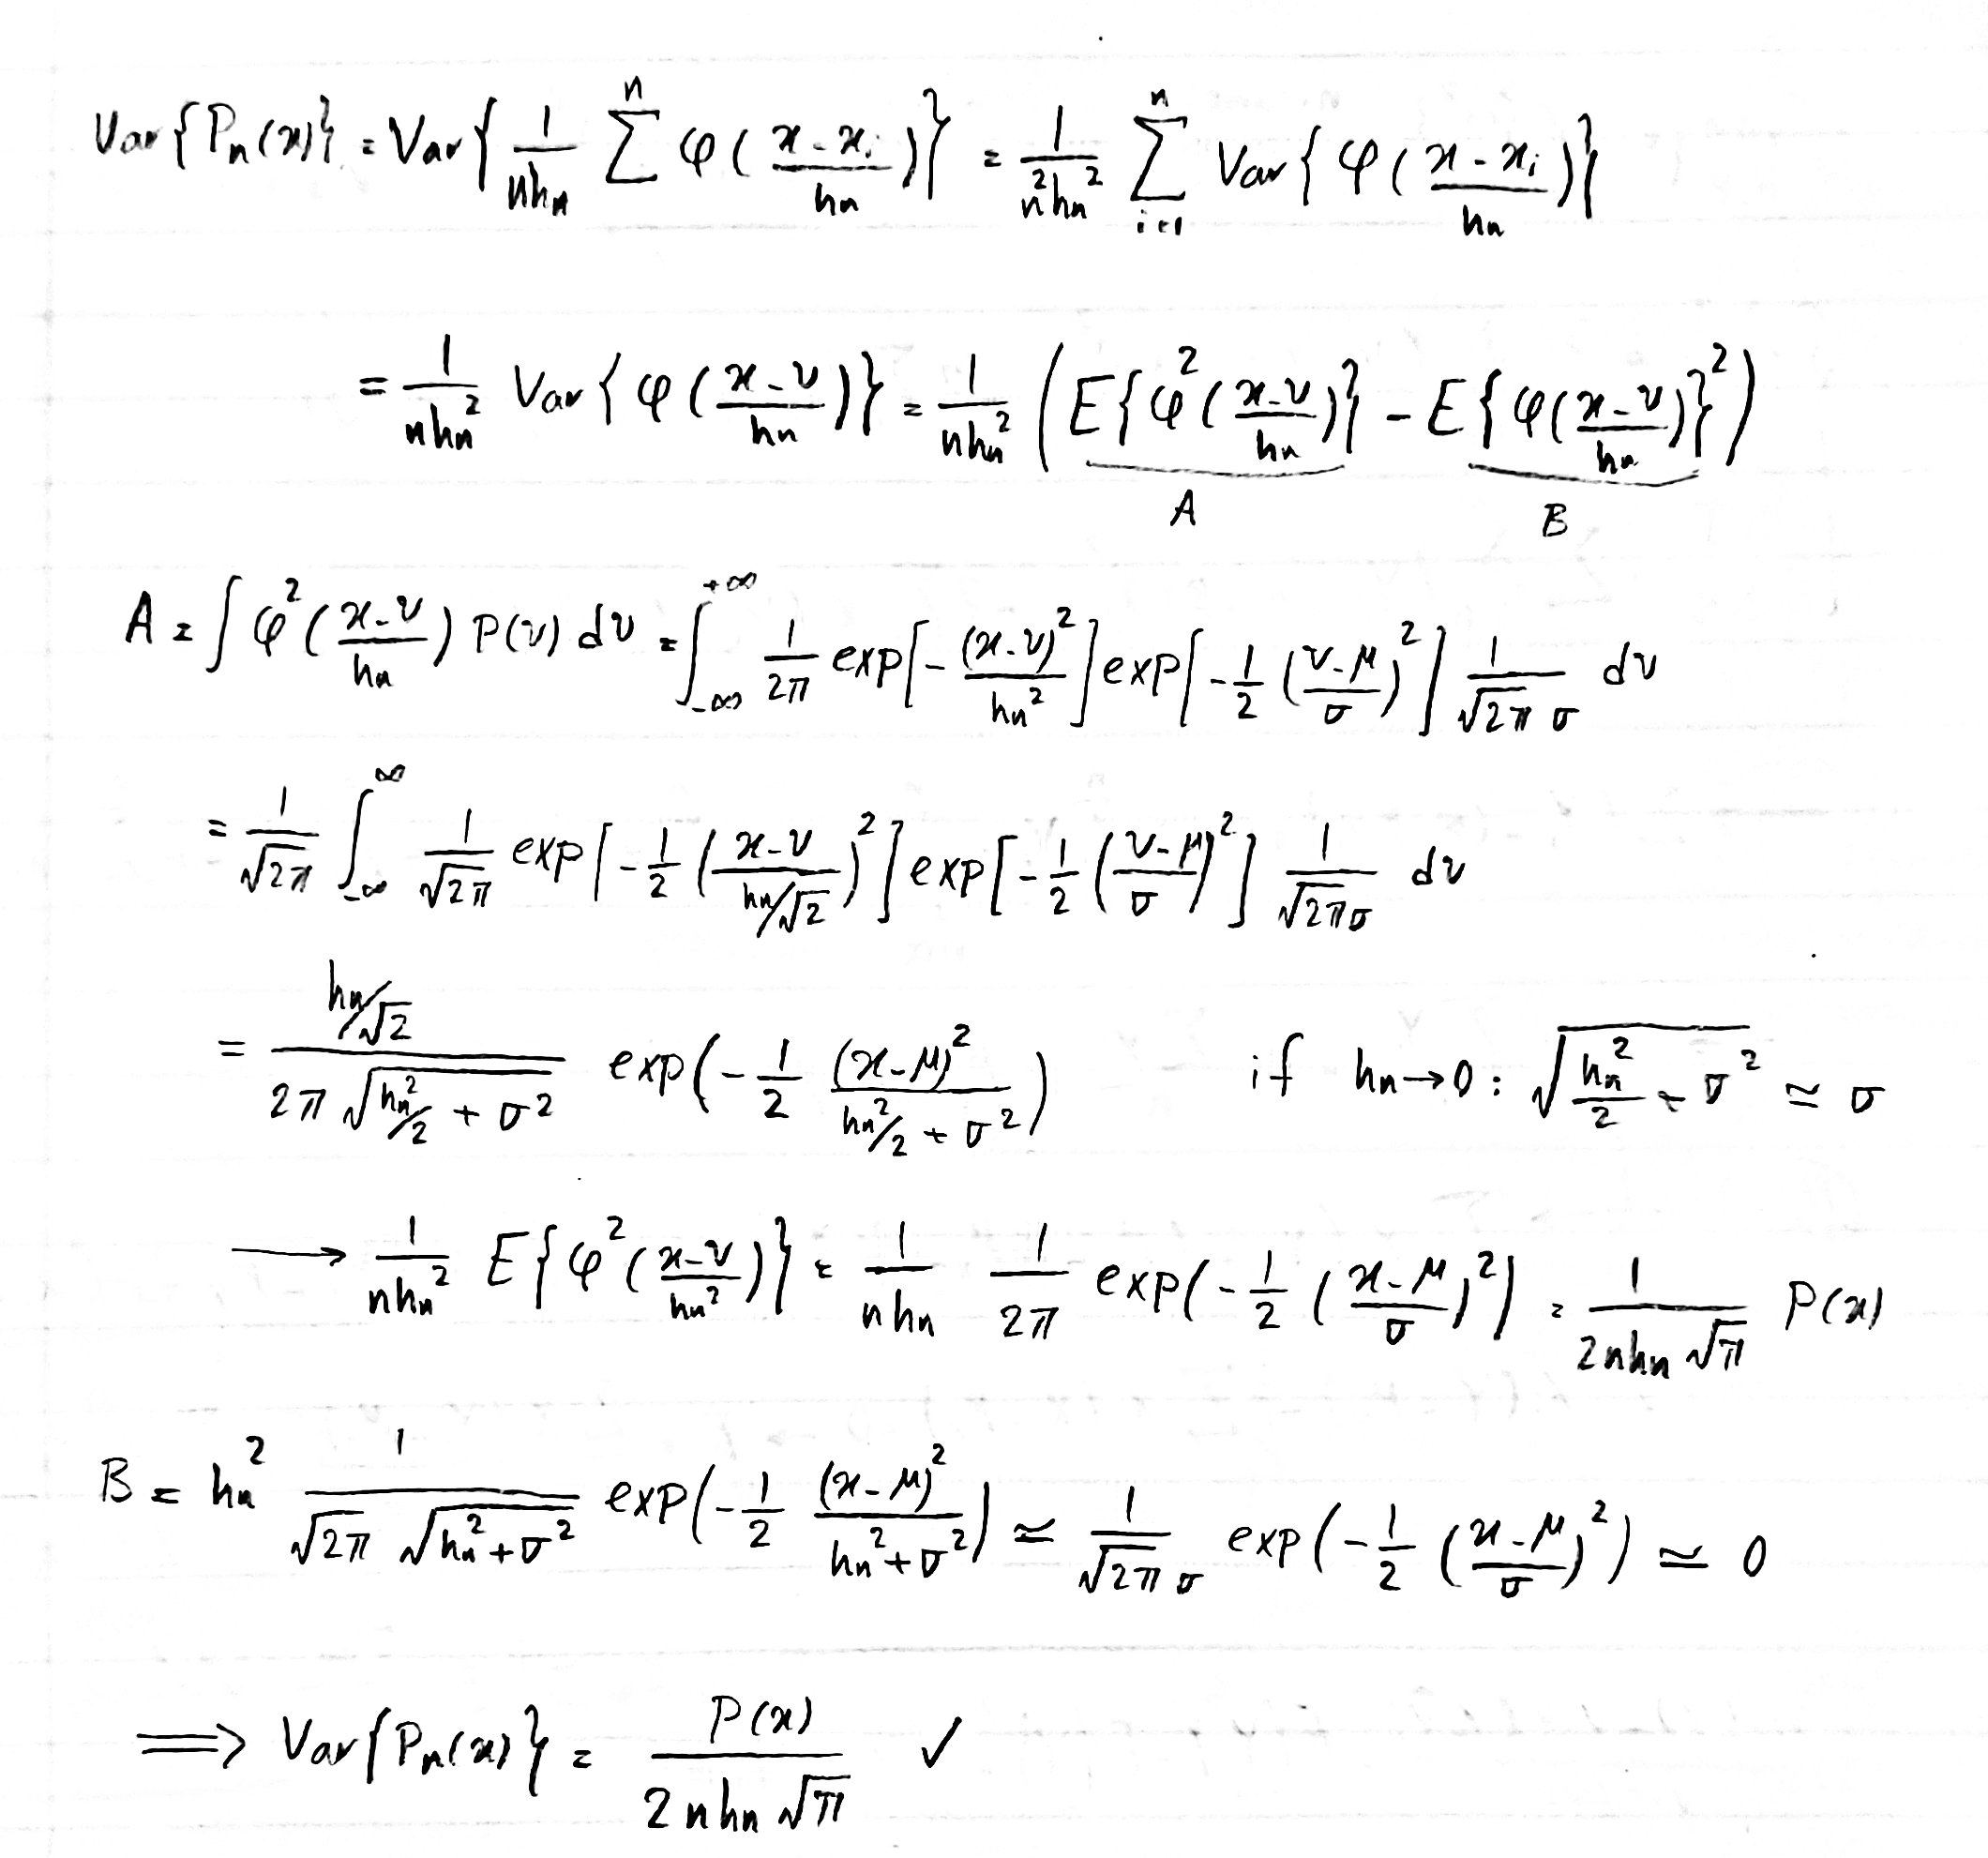 Var{Pn(x)} = Var{ 1/(nhn) Σ^n φ( (x-xi)/hn ) } = 1/(n²hn²) Σ_{i=1}^n Var{ φ( (x-xi)/hn ) }
= 1/(nhn²) Var{ φ( (x-v)/hn ) } = 1/(nhn²) ( E{ φ²( (x-v)/hn ) } - E{ φ( (x-v)/hn ) }² )
A B
A = ∫ φ²( (x-v)/hn ) P(v) dv = ∫_{-∞}^{+∞} 1/(2π) exp[ - (x-v)²/hn² ] exp[ - 1/2 ( (v-μ)/σ )² ] 1/(√2π σ) dv
= 1/√2π ∫_{-∞}^{∞} 1/√2π exp[ - 1/2 ( (x-v)/(hn/√2) )² ] exp[ - 1/2 ( (v-μ)/σ )² ] 1/(√2π σ) dv
= (hn/√2)/(2π √(hn²/2 + σ²)) exp( - 1/2 (x-μ)²/(hn²/2 + σ²) ) if hn→0 : √(hn²/2 + σ²) ≃ σ
⟶ 1/(nhn²) E{ φ²( (x-v)/hn² ) } = 1/(nhn) 1/(2π) exp( - 1/2 ( (x-μ)/σ )² ) = 1/(2nhn √π) P(x)
B = hn² 1/(√2π √(hn²+σ²)) exp( - 1/2 (x-μ)²/(hn²+σ²) ) ≃ 1/(√2π σ) exp( - 1/2 ( (x-μ)/σ )² ) ≃ 0
⟹ Var{Pn(x)} = P(x)/(2nhn √π) ✓